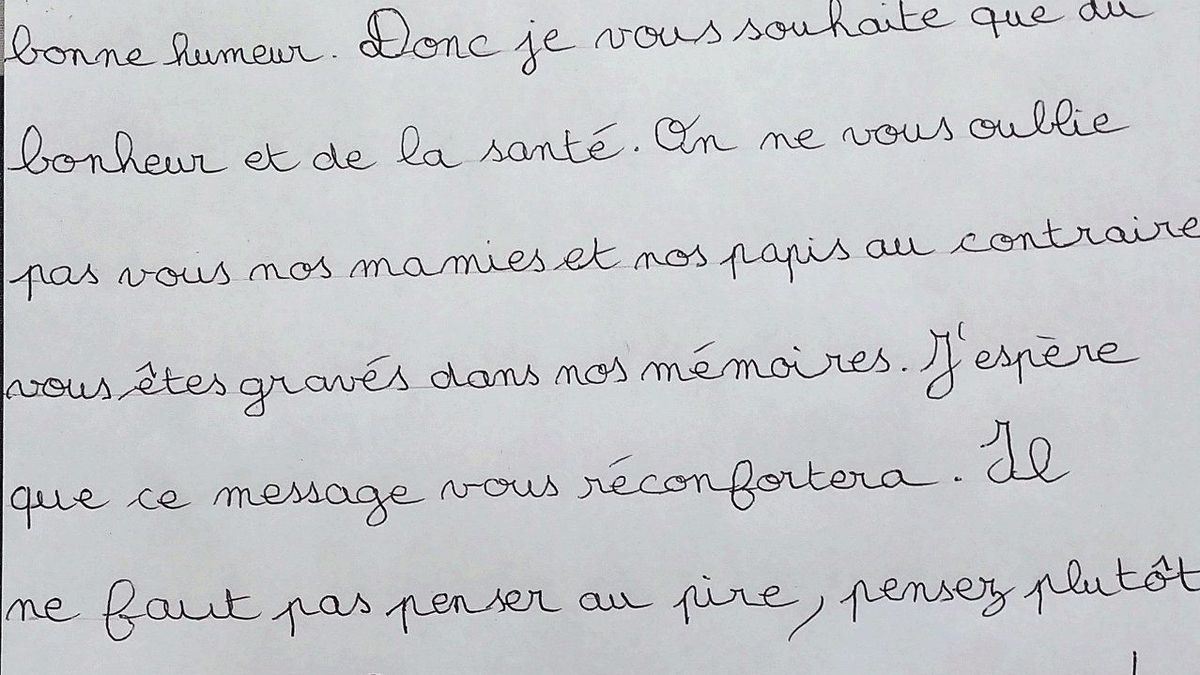 bonne humeur. Donc je vous souhaite que du
bonheur et de la santé. On ne vous oublie
pas vous nos mamies et nos papis au contraire
vous êtes gravés dans nos mémoires. J'espère
que ce message vous réconfortera. Il
ne faut pas penser au pire, pensez plutôt